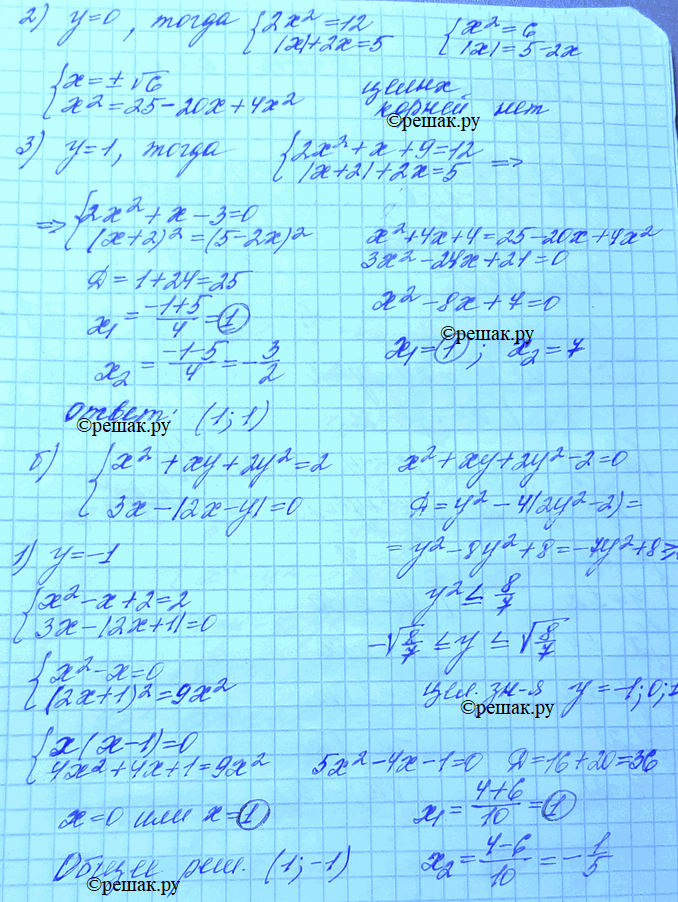 2) y=0, тогда {2x²=12 {x²=6
|x|+2x=5 |x|=5-2x
{x=±√6 целых
x²=25-20x+4x² корней нет
©решак.ру
3) y=1, тогда {2x²+x+9=12
|x+2|+2x=5 =>
=> {2x²+x-3=0
(x+2)²=(5-2x)² x²+4x+4=25-20x+4x²
3x²-24x+21=0
Д=1+24=25
x²-8x+7=0
x₁=(-1+5)/4=1
©решак.ру
x₁=1; x₂=7
x₂=(-1-5)/4=-3/2
ответ: (1;1)
©решак.ру
б) {x²+xy+2y²=2 x²+xy+2y²-2=0
3x-|2x-y|=0 Д=y²-4(2y²-2)=
1) y=-1 =y²-8y²+8=-7y²+8≥
{x²-x+2=2 y²≤8/7
3x-|2x+1|=0
-√8/7≤y≤√8/7
{x²-x=0
(2x+1)²=9x² цел. зн-я y=-1;0;1
©решак.ру
{x(x-1)=0
4x²+4x+1=9x² 5x²-4x-1=0 Д=16+20=36
x=0 или x=1 x₁=(4+6)/10=1
Общее реш. (1;-1) x₂=(4-6)/10=-1/5
©решак.ру